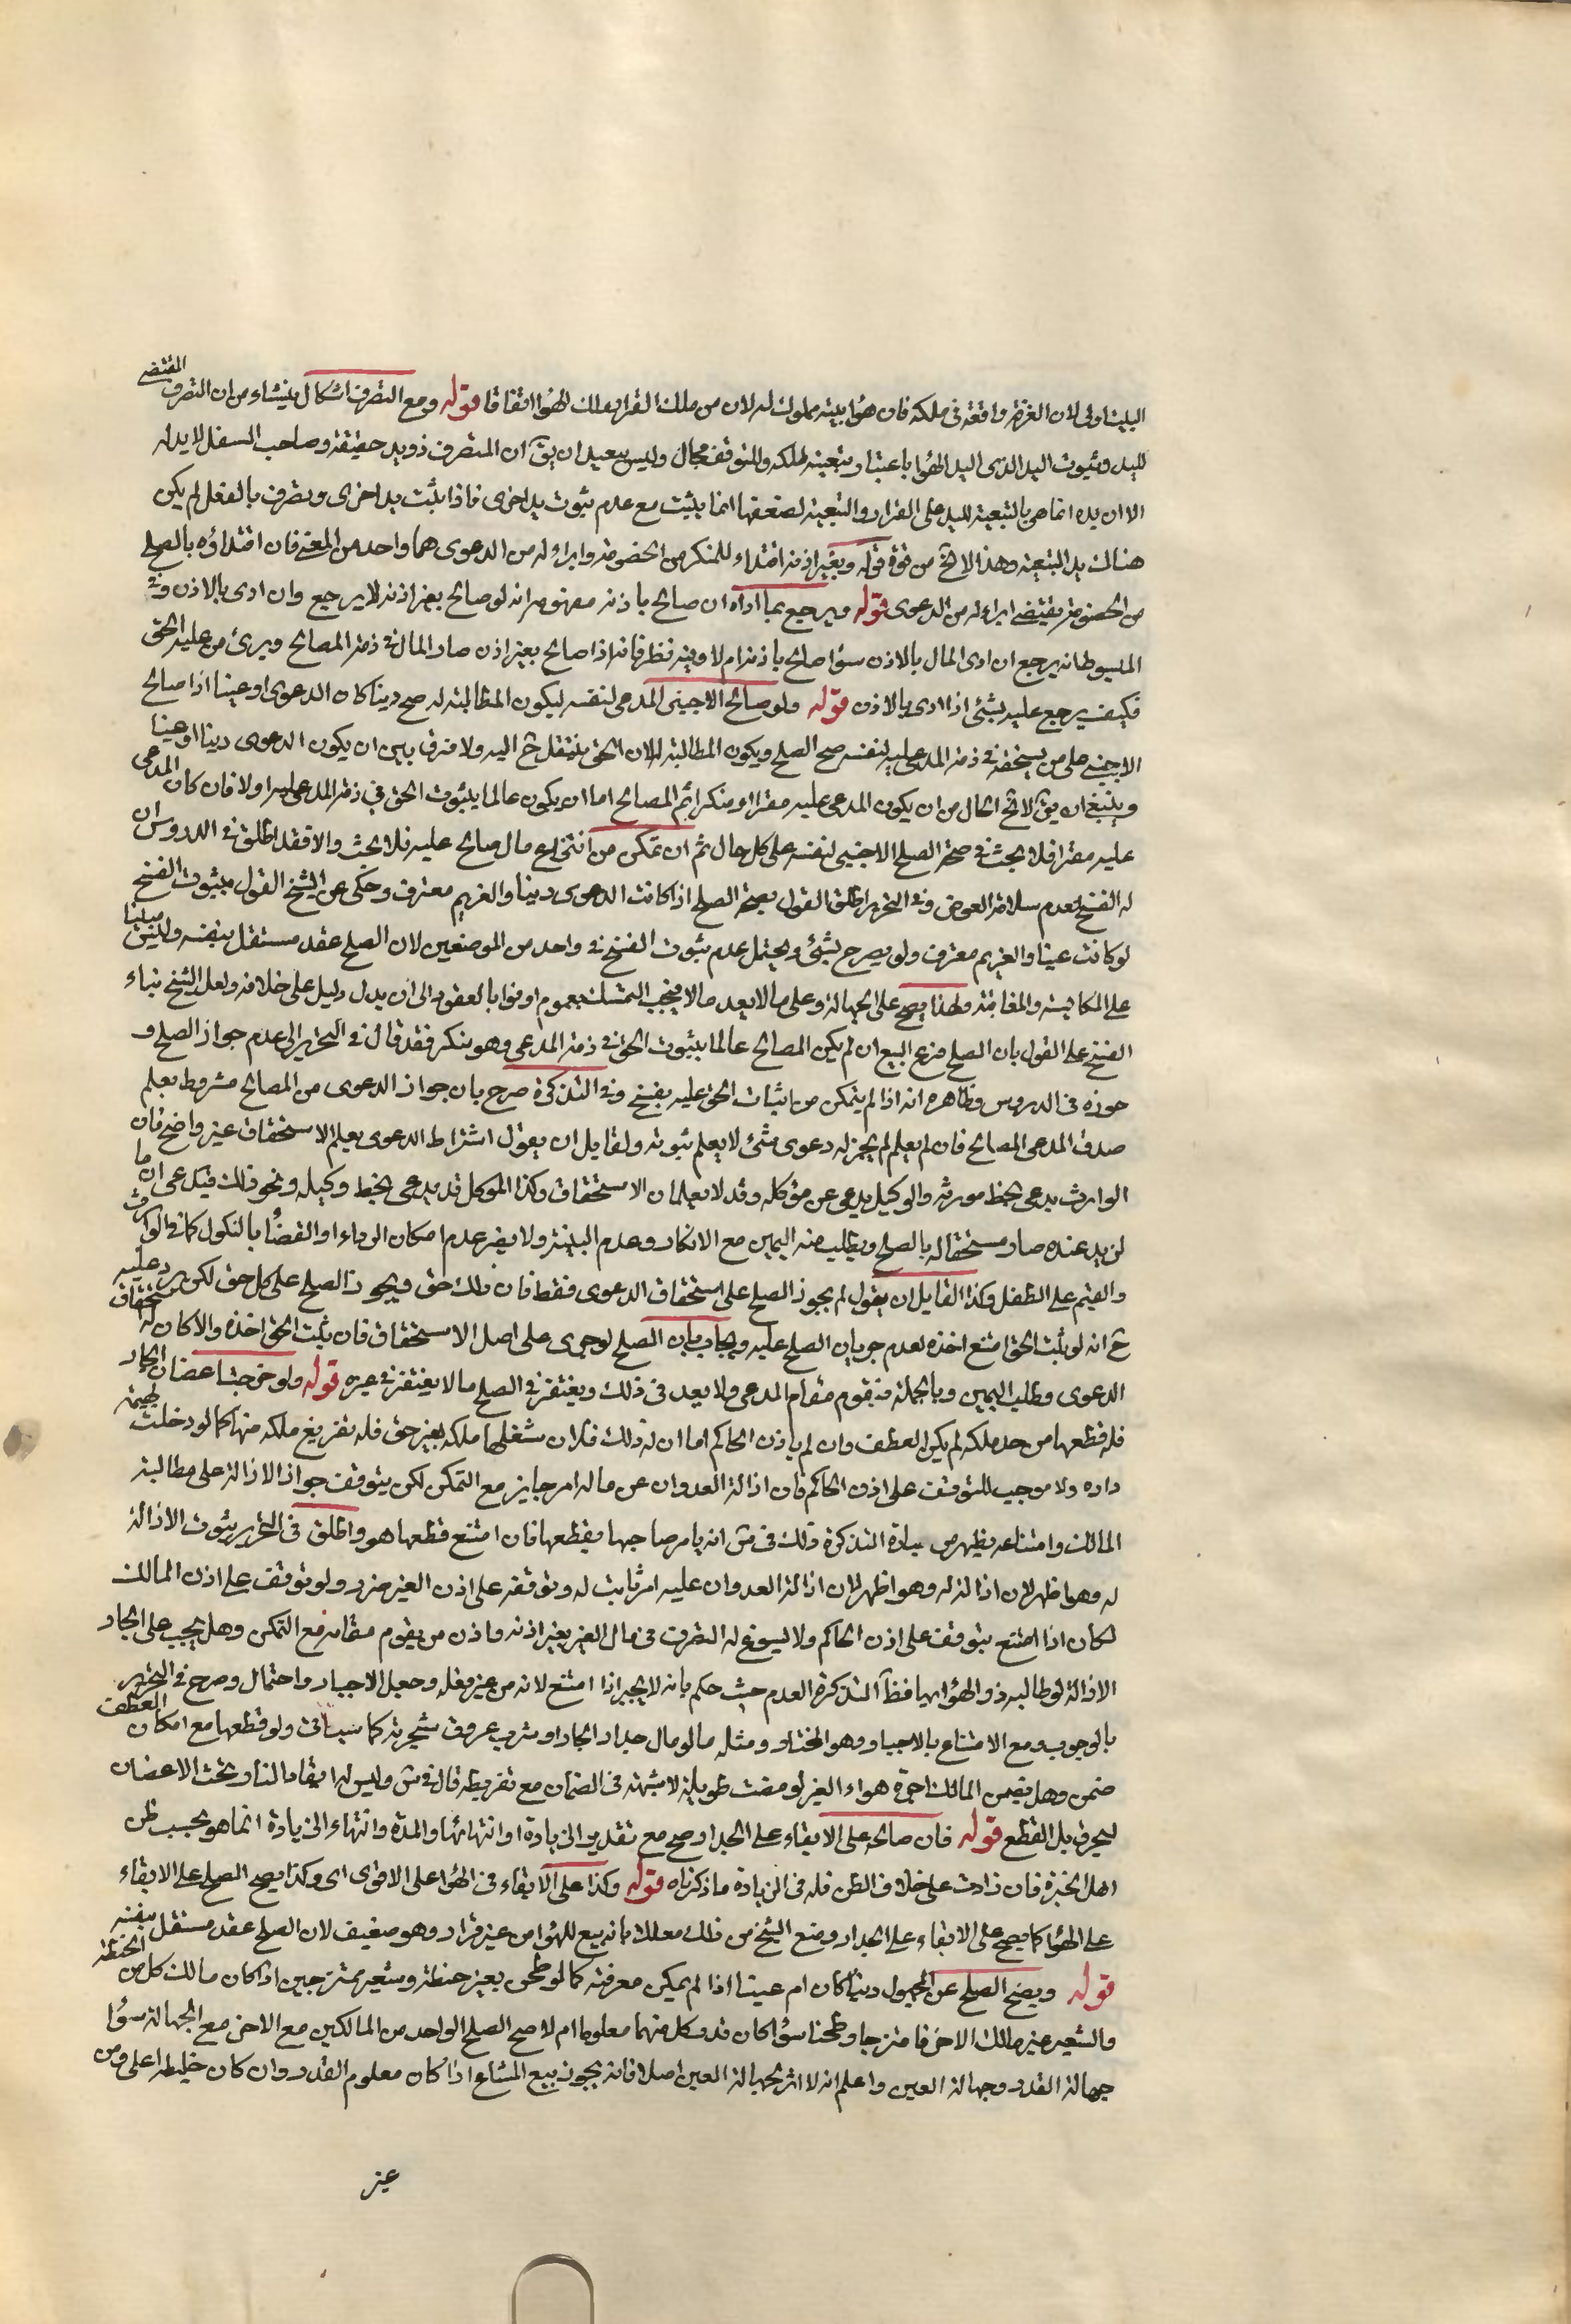 البيت اولى لان الغرفة واقعة في ملكه فان هواء بيته مملوك له لان من ملك القرار ملك الهواء اتفاقا قوله ومع التصرف اشكال ينشاء من ان التصرف المقتضي
لليد وثبوت اليد الذي اليد الهواء باعتبار تبعيته لملكه وللتوقف مجال وليس ببعيد ان يق ان المتصرف ذو يد حقيقة وصاحب السفل لا يد له
الا ان يده انما هي بالتبعية لليد على القرار والتبعية لضعفها انما يثبت مع عدم ثبوت يد اخرى فاذا ثبت يد اخرى وتصرف بالفعل لم يكن
هناك يد التبعية وهذا لا يخ من قوة قوله وبغير اذنه افتداء للمنكر من الخصومة وابراء له من الدعوى هما واحد من المعنى فان افتداؤه بالصلح
من الخصومة يقتضي ابراءه من الدعوى قوله ويرجع بما اداه ان صالح باذنه مفهومه انه لو صالح بغير اذنه لا يرجع وان ادى بالاذن وفي
المبسوط انه يرجع ان ادى المال بالاذن سواء صالح باذنه ام لا وفيه نظر فانه اذا صالح بغير اذن صار المال في ذمة المصالح وبرئ من عليه الحق
فكيف يرجع عليه بشئ اذا ادى بالاذن قوله ولو صالح الاجنبي المدعي لنفسه ليكون المطالبة له صح دينا كان الدعوى او عينا اذا صالح
الاجنبي على من يستحقه في ذمة المدعى عليه لنفسه صح الصلح ويكون المطالبة له لان الحق ينتقل ح اليه ولا فرق بين ان يكون الدعوى دينا او عينا
وينبغي ان يق لا يخ الحال من ان يكون المدعى عليه مقرا او منكرا ثم المصالح اما ان يكون عالما بثبوت الحق في ذمة المدعى عليه او لا فان كان المدعى
عليه مقرا فلا بحث في صحة الصلح الاجنبي لنفسه على كل حال ثم ان تمكن من انتزاع مال صالح عليه فلا بحث والا فقد اطلق في الدروس ان
له الفسخ لعدم سلامة العوض وفي التحرير اطلق القول بصحة الصلح اذا كانت الدعوى دينا والغريم معترف وحكى عن الشيخ القول بثبوت الفسخ
لو كانت عينا والغريم معترف ولو يصرح بشئ ويحتمل عدم ثبوت الفسخ في واحد من الموضعين لان الصلح عقد مستقل بنفسه وليس مبنيا
على المكايسة والمغابنة ولهذا يصح على الجهالة وعلى ما لا يعد مالا فيجب التمسك بعموم اوفوا بالعقود الى ان يدل دليل على خلافه ولعل الشيخ بناء
الفسخ على القول بان الصلح فرع البيع ان لم يكن المصالح عالما بثبوت الحق في ذمة المدعى وهو منكر فقد قال في التحرير الى عدم جواز الصلح و
جوزه في الدروس وظاهره انه اذا لم يتمكن من اثبات الحق عليه يفسخ وفي التذكرة صرح بان جواز الدعوى من المصالح مشروط بعلم
صدق المدعي المصالح فان لم يعلم لم يجز له دعوى شئ لا يعلم ثبوته ولقايل ان يقول اشتراط الدعوى بعلم الاستحقاق غير واضح فان
الوارث يدعي بخط مورثه والوكيل يدعي عن موكله وقد لا يعلمان الاستحقاق وكذا الموكل قد يدعي بخط وكيله ونحو ذلك فيدعي ان ما
لزيد عنده صار مستحقا له بالصلح ويطلب منه اليمين مع الانكار وعدم البينة ولا يضر عدم امكان الرد او القضاء بالنكول كما في الوارث
والقيم على الطفل وكذا القايل ان يقول لم يجوز الصلح على استحقاق الدعوى فقط فان ذلك حق ويجوز الصلح على كل حق لكن يرد عليه
ح انه لو يثبت الحق امتنع اخذه لعدم جريان الصلح عليه ويجاب بان الصلح لو جرى على اصل الاستحقاق فان يثبت الحق اخذه والا كان له استحقاق
الدعوى وطلب اليمين وبالجملة فيقوم مقام المدعي ولا بعد في ذلك ويغتفر في الصلح ما لا يغتفر في غيره قوله ولو خرجت اغصان الجار
فله قطعها من حد ملكه لم يكن العطف وان لم ياذن الحاكم اما ان له ذلك فلان شغلها ملكه بغير حق فله تفريغ ملكه منها كما لو دخلت بهيمة
داره ولا موجب للتوقف على اذن الحاكم فان ازالة العدوان عن ماله امر جايز مع التمكن لكن يتوقف جواز الازالة على مطالبة
المالك وامتناعه يظهر من عبارة التذكرة ذلك في س انه يامر صاحبها بقطعها فان امتنع قطعها هو واطلق في التحرير ثبوت الازالة
له وهو اظهر لان ازالة له وهو اظهر لان ازالة العدوان عليه امر ثابت له وتوقفه على اذن الغير ضرر ولو توقف على اذن المالك
لكان اذا امتنع يتوقف على اذن الحاكم ولا يسوغ له التصرف في مال الغير بغير اذنه واذن من يقوم مقامه مع التمكن وهل يجب على الجار
الازالة لو طالبه ذو الهواء بها فظ التذكرة العدم حيث حكم بانه لا يجبر اذا امتنع لانه من غير فعله وجعل الاجبار واحتمال وصرح في التحرير
بالوجوب ومع الامتناع بالاجبار وهو المختار ومثله ما لو مال جدار الجار او سرب عروق شجرته كما سيأتي ولو قطعها مع امكان العطف
ضمن وهل يضمن المالك اجرة هواء الغير لو مضت طويلة لا شبهة في الضمان مع تفريطه قال في س وليس له ايقاد النار تحت الاغصان
ليحرق بل القطع قوله فان صالحه على الابقاء على الجدار صح مع تقدير الزيادة او انتهائها والمدة وانتهاء الزيادة انما هو بحسب ظن
اهل الخبرة فان زادت على خلاف الظن فله في الزيادة ما ذكرناه قوله وكذا على الابقاء في الهواء على الاقوى اى وكذا يصح الصلح على الابقاء
على الهواء كما يصح على الابقاء على الجدار ومنع الشيخ من ذلك معللا بانه بيع للهواء من غير قرار وهو ضعيف لان الصلح عقد مستقل بنفسه
قوله ويصح الصلح عن المجهول دينا كان ام عينا اذا لم يمكن معرفته كما لو طحن بغير حنطة وشعير ممتزجين اذا كان مالك كل من الحنطة
والشعير غير مالك الاخر فامتزجا وطحنا سواء كان قدر كل منهما معلوما ام لا صح الصلح الواحد من المالكين مع الاخر مع الجهالة سواء
جهالة القدر وجهالة العين واعلم انه لا اثر لجهالة العين اصلا فانه يجوز بيع المشاع اذا كان معلوم القدر وان كان خليطه اعلى ومن
غير